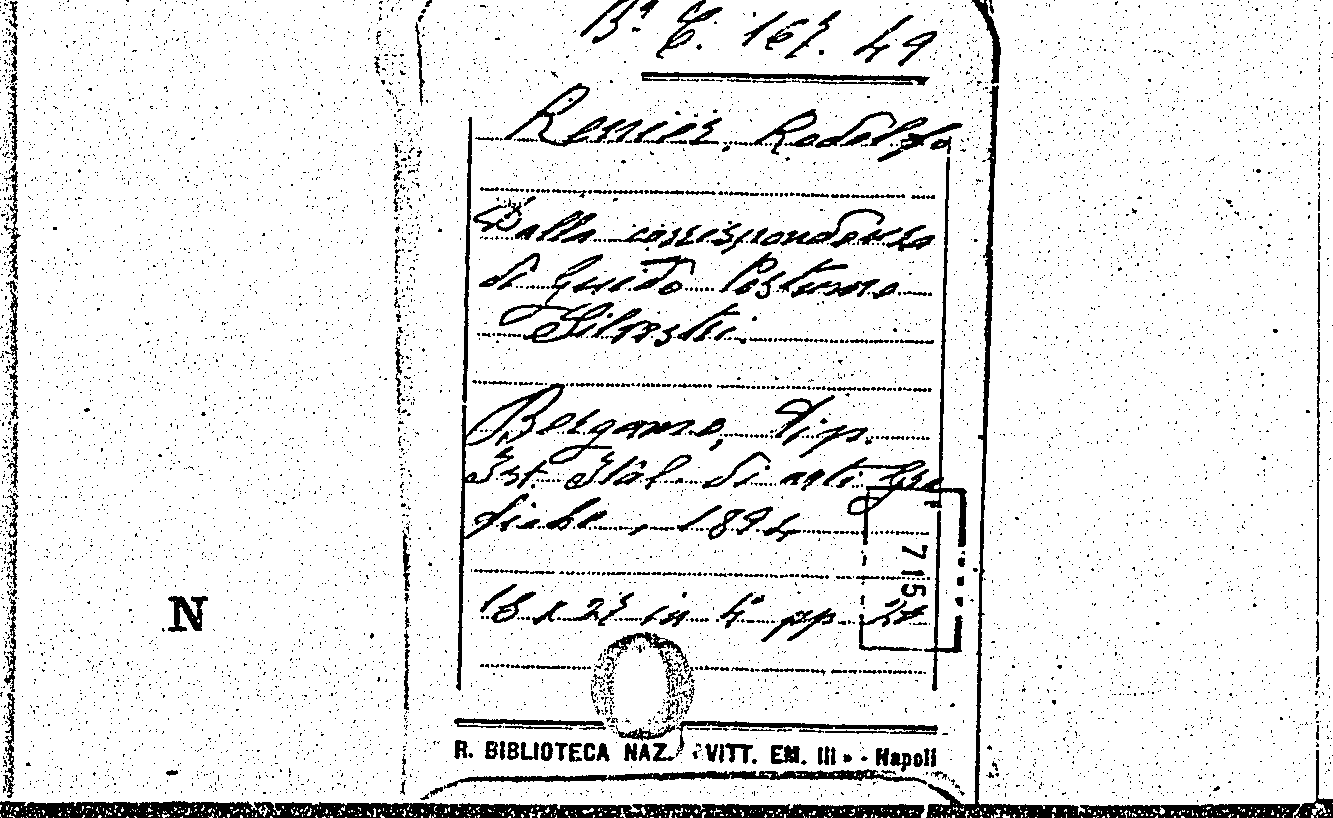 Bª C. 167. 49
Renier, Rodolfo
Dalla corrispondenza
di Guido Postumo
Silvestri.
Bergamo, Tip.
Ist. Ital. di arti Gra
fiche, 1894
715
N
18 x 27 in 4° pp. 24
R. BIBLIOTECA NAZ. VITT. EM. III » - Napoli